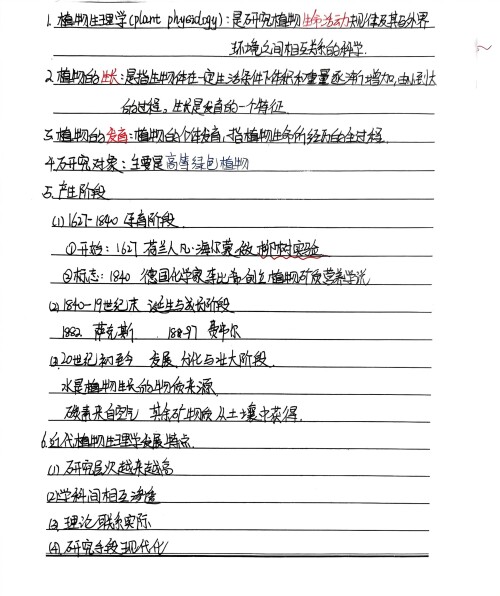 1. 植物生理学(plant physiology)：是研究植物生命活动规律及其与外界
环境之间相互联系的科学.
2. 植物的生长：是指生物体在一定生活条件下体积和重量逐渐增加,由小到大
的过程。生长是发育的一个特征.
3. 植物的发育：植物的个体发育,指植物生命所经历的全过程.
4. 研究对象：主要是高等绿色植物
5. 产生阶段
(1) 1627-1840 孕育阶段
①开始：1627 荷兰人凡·海尔蒙做柳树实验
②标志：1840 德国化学家李比希创立植物矿质营养学说
(2) 1840-19世纪末 诞生与成长阶段
1882 萨克斯 1884-97 费弗尔
(3) 20世纪初至今 发展、分化与壮大阶段
水是植物生长的物质来源
碳素来自空气 其余矿物质从土壤中获得.
6. 近代植物生理学发展特点.
(1) 研究层次越来越高
(2) 学科间相互渗透
(3) 理论联系实际
(4) 研究手段现代化